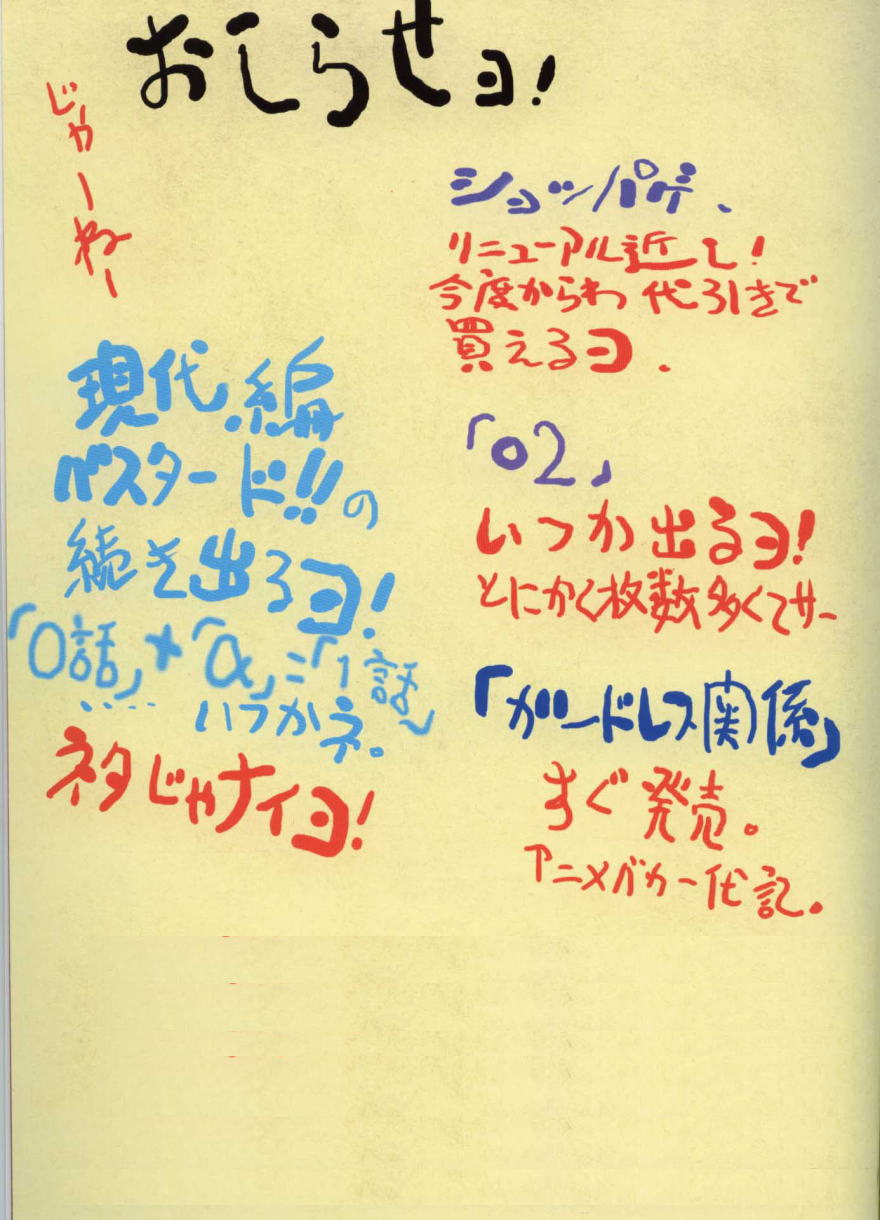 おしらせヨ!
ショッパゲ、
リニューアル近し!
今度からわ代引きで
買えるヨ.
「02」
いつか出るヨ!
とにかく枚数多くてサー
「ガードレス関係」
すぐ発売。
アニメバカ一代記。
現代編
バスタード!!の
続き出るヨ!
「0話」+「α」=「1話〜
.....いつかネ。
ネタじゃナイヨ!
じゃーねー